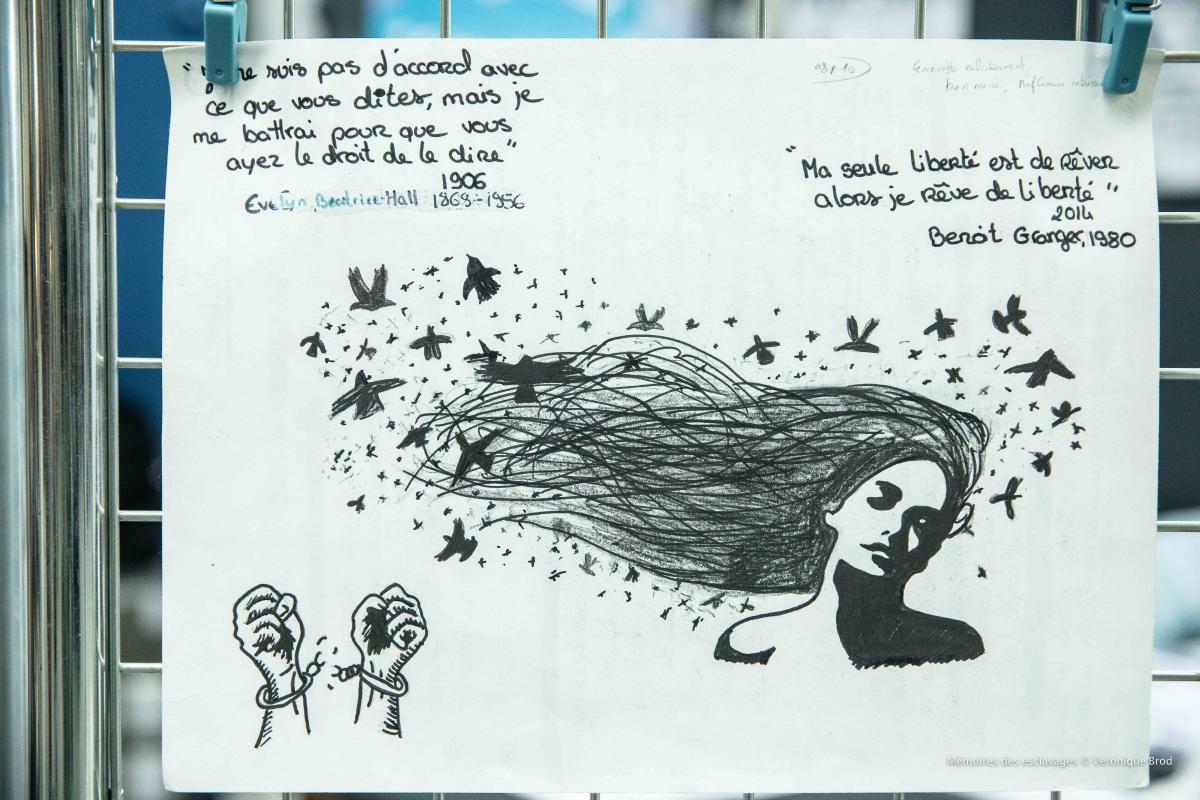 " ne suis pas d'accord avec
ce que vous dites, mais je
me battrai pour que vous
ayez le droit de le dire"
1906
Evelyn Beatrice Hall 1868-1956
08/10
Ensemble
bonne,
"Ma seule liberté est de Rêver
alors je Rêve de liberté"
2014
Benoît Granger, 1980
Mémoires des esclavages © Veronique Brod